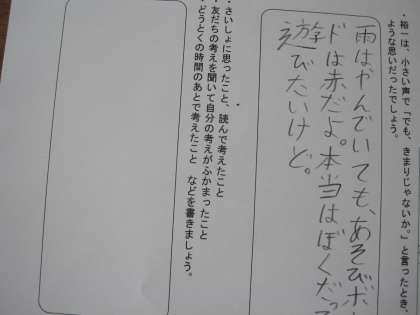 ・裕一は、小さい声で「でも、きまりじゃないか。」と言ったとき、
ような思いだったでしょう。
雨はやんでいても、あそびボー
ドは赤だよ。本当はぼくだって
遊びたいけど。
・さいしょに思ったこと、読んで考えたこと
・友だちの考えを聞いて自分の考えがふかまったこと
・どうとくの時間のあとで考えたこと などを書きましょう。